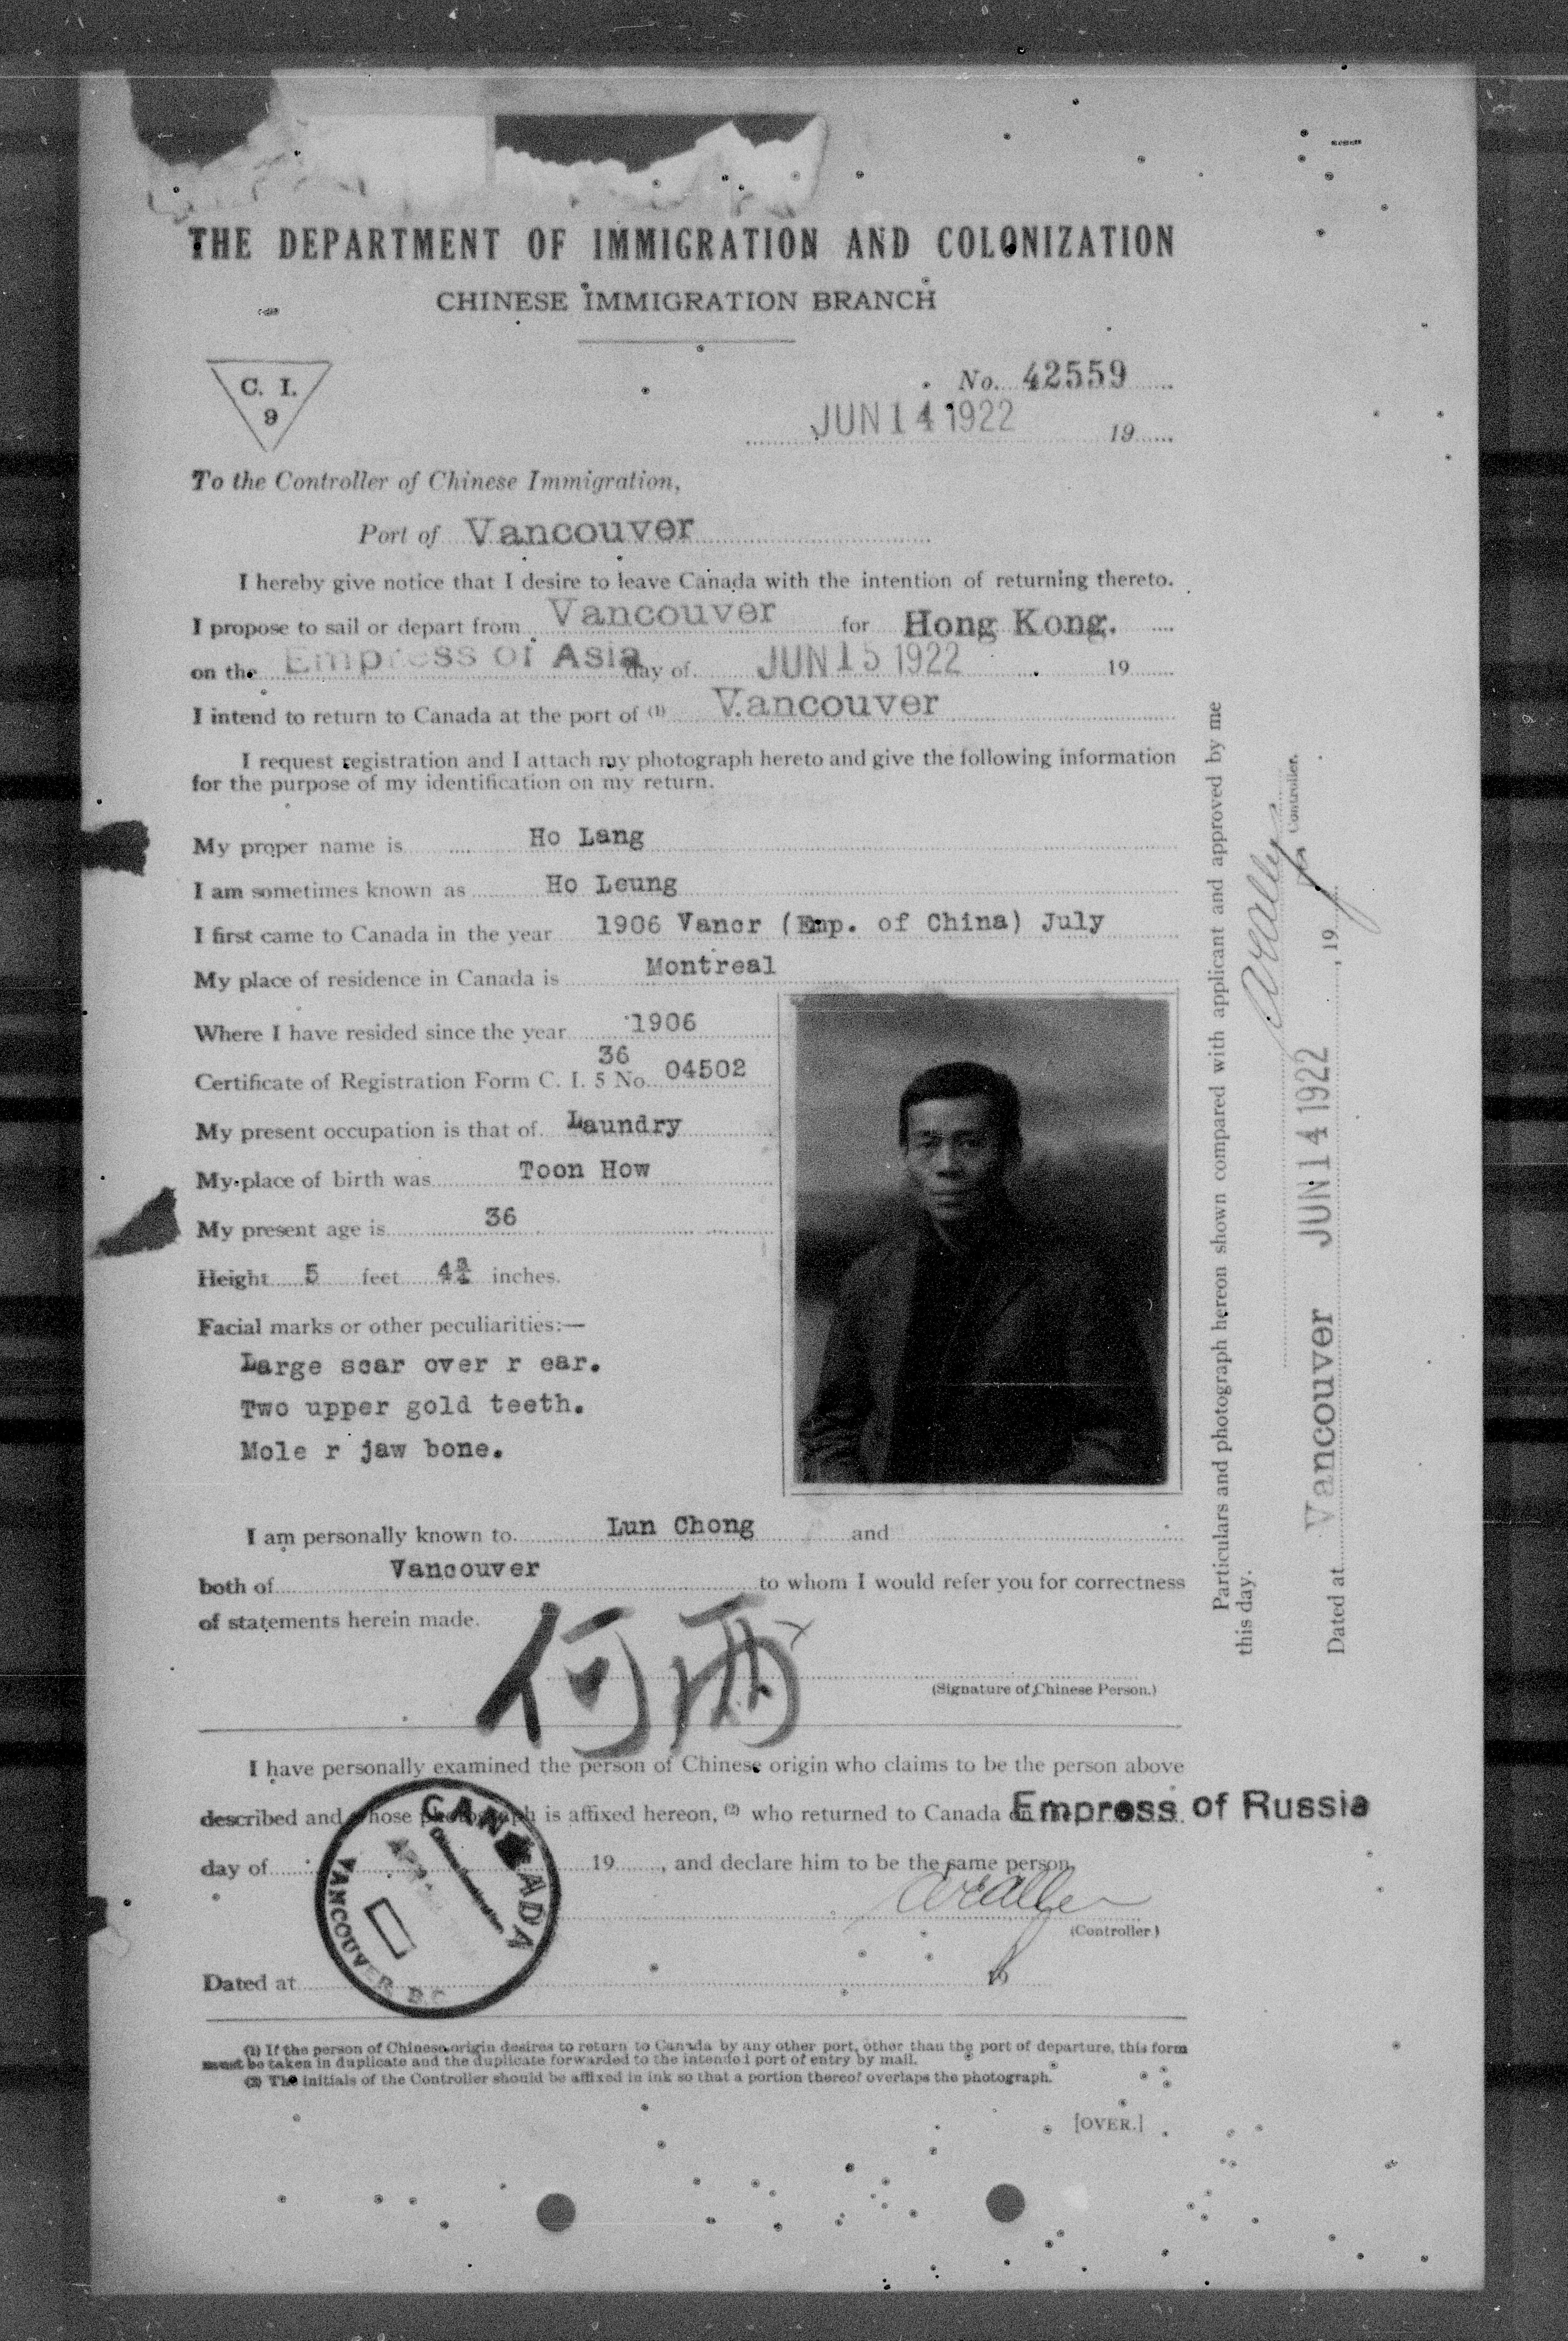 THE DEPARTMENT OF IMMIGRATION AND COLONIZATION
CHINESE IMMIGRATION BRANCH
C. I.
9
No. 42559
JUN 14 1922 19
To the Controller of Chinese Immigration,
Port of Vancouver
I hereby give notice that I desire to leave Canada with the intention of returning thereto.
I propose to sail or depart from Vancouver for Hong Kong.
on the Empress of Asia day of JUN 15 1922 19
I intend to return to Canada at the port of (1) Vancouver
I request registration and I attach my photograph hereto and give the following information
for the purpose of my identification on my return.
My proper name is Ho Lang
I am sometimes known as Ho Leung
I first came to Canada in the year 1906 Vancr (Emp. of China) July
My place of residence in Canada is Montreal
Where I have resided since the year 1906
36
Certificate of Registration Form C. I. 5 No. 04502
My present occupation is that of Laundry
My place of birth was Toon How
My present age is 36
Height 5 feet 4¾ inches.
Facial marks or other peculiarities:—
Large scar over r ear.
Two upper gold teeth.
Mole r jaw bone.
I am personally known to Lun Chong and
both of Vancouver to whom I would refer you for correctness
of statements herein made.
何両
(Signature of Chinese Person.)
I have personally examined the person of Chinese origin who claims to be the person above
described and whose photograph is affixed hereon, (2) who returned to Canada on Empress of Russia
day of 19 , and declare him to be the same person.
(Controller)
Dated at
CANADA
APR
VANCOUVER B.C.
(1) If the person of Chinese origin desires to return to Canada by any other port, other than the port of departure, this form
must be taken in duplicate and the duplicate forwarded to the intended port of entry by mail.
(2) The initials of the Controller should be affixed in ink so that a portion thereof overlaps the photograph.
[OVER.]
Particulars and photograph hereon shown compared with applicant and approved by me
this day.
Controller.
Dated at Vancouver JUN 14 1922 , 19